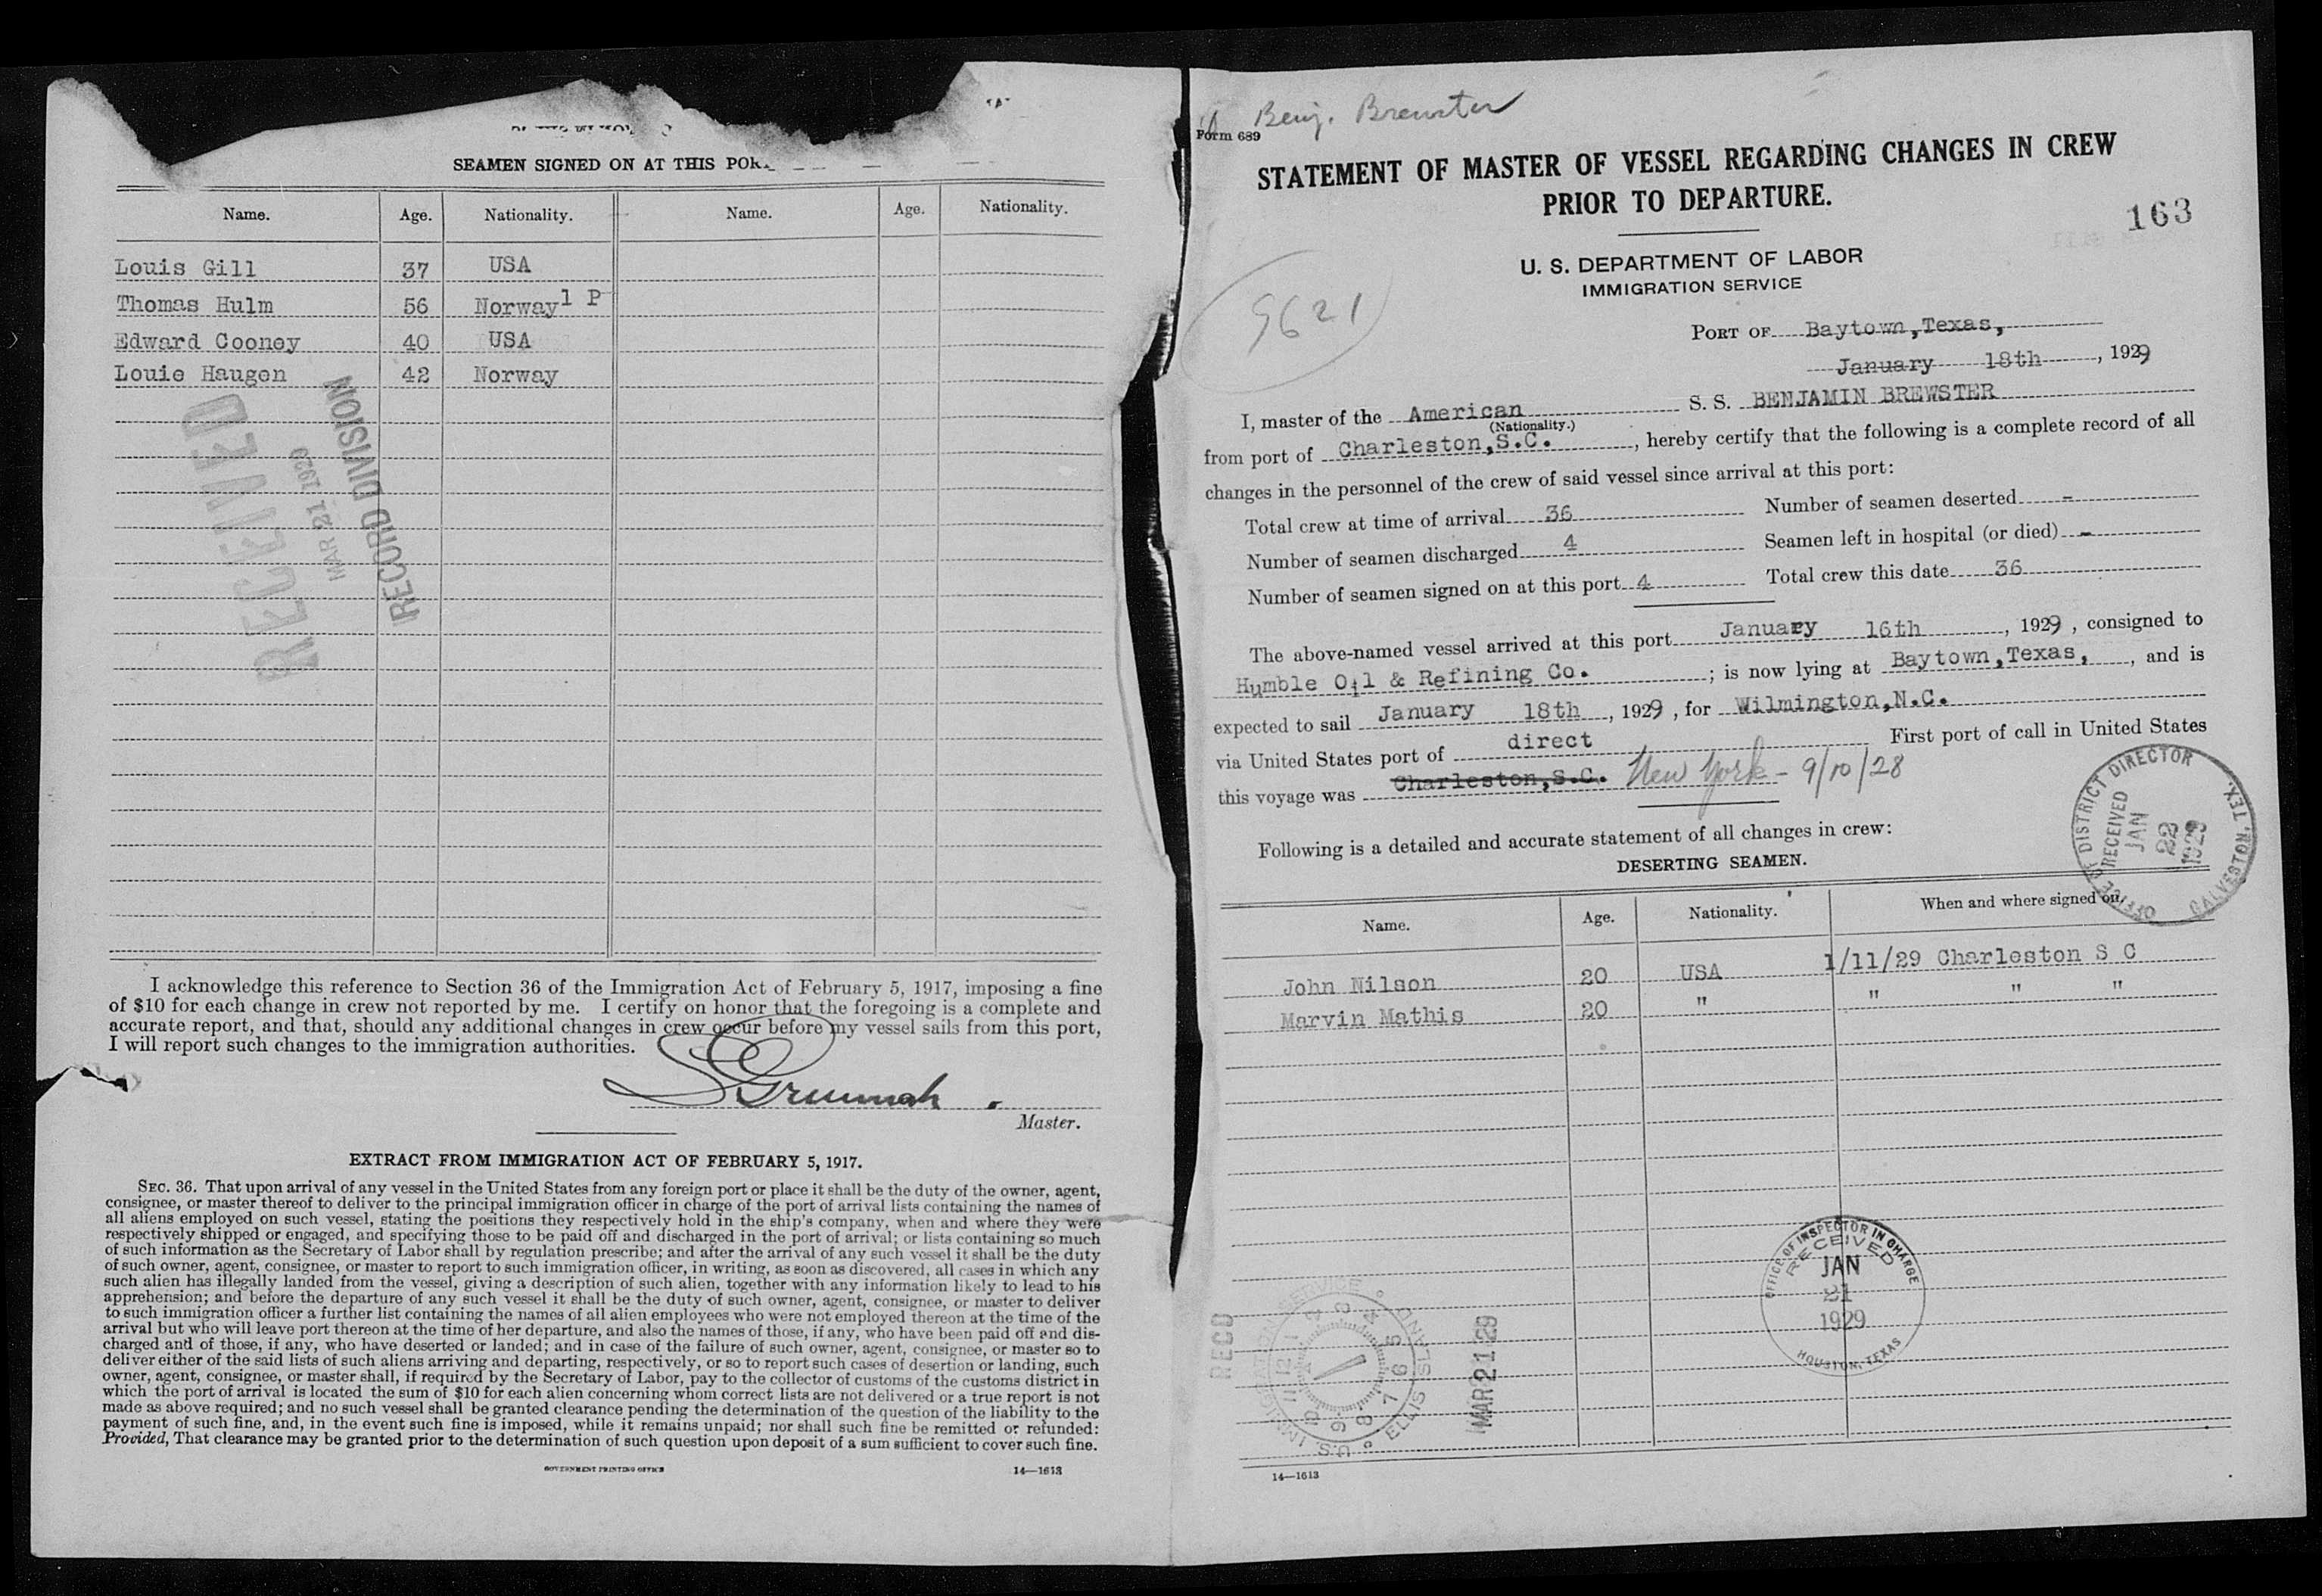 SEAMEN SIGNED ON AT THIS
Name. Age. Nationality. Name. Age. Nationality.
Louis Gill 37 USA
Thomas Hulm 56 Norway 1 P
Edward Cooney 40 USA
Louie Haugen 42 Norway
RECEIVED
MAR 21 1929
RECORD DIVISION
I acknowledge this reference to Section 36 of the Immigration Act of February 5, 1917, imposing a fine
of $10 for each change in crew not reported by me. I certify on honor that the foregoing is a complete and
accurate report, and that, should any additional changes in crew occur before my vessel sails from this port,
I will report such changes to the immigration authorities.
Master.
EXTRACT FROM IMMIGRATION ACT OF FEBRUARY 5, 1917.
SEC. 36. That upon arrival of any vessel in the United States from any foreign port or place it shall be the duty of the owner, agent,
consignee, or master thereof to deliver to the principal immigration officer in charge of the port of arrival lists containing the names of
all aliens employed on such vessel, stating the positions they respectively hold in the ship's company, when and where they were
respectively shipped or engaged, and specifying those to be paid off and discharged in the port of arrival; or lists containing so much
of such information as the Secretary of Labor shall by regulation prescribe; and after the arrival of any such vessel it shall be the duty
of such owner, agent, consignee, or master to report to such immigration officer, in writing, as soon as discovered, all cases in which any
such alien has illegally landed from the vessel, giving a description of such alien, together with any information likely to lead to his
apprehension; and before the departure of any such vessel it shall be the duty of such owner, agent, consignee, or master to deliver
to such immigration officer a further list containing the names of all alien employees who were not employed thereon at the time of the
arrival but who will leave port thereon at the time of her departure, and also the names of those, if any, who have been paid off and dis-
charged and of those, if any, who have deserted or landed; and in case of the failure of such owner, agent, consignee, or master so to
deliver either of the said lists of such aliens arriving and departing, respectively, or so to report such cases of desertion or landing, such
owner, agent, consignee, or master shall, if required by the Secretary of Labor, pay to the collector of customs of the customs district in
which the port of arrival is located the sum of $10 for each alien concerning whom correct lists are not delivered or a true report is not
made as above required; and no such vessel shall be granted clearance pending the determination of the question of the liability to the
payment of such fine, and, in the event such fine is imposed, while it remains unpaid; nor shall such fine be remitted or refunded:
Provided, That clearance may be granted prior to the determination of such question upon deposit of a sum sufficient to cover such fine.
GOVERNMENT PRINTING OFFICE 14—1613
Benj. Brewster
Form 689
STATEMENT OF MASTER OF VESSEL REGARDING CHANGES IN CREW
PRIOR TO DEPARTURE.
163
U. S. DEPARTMENT OF LABOR
IMMIGRATION SERVICE
9621
PORT OF Baytown,Texas,
January 18th, 1929
I, master of the American S. S. BENJAMIN BREWSTER
(Nationality.)
from port of Charleston,S.C., hereby certify that the following is a complete record of all
changes in the personnel of the crew of said vessel since arrival at this port:
Total crew at time of arrival 36 Number of seamen deserted -
Number of seamen discharged 4 Seamen left in hospital (or died) -
Number of seamen signed on at this port 4 Total crew this date 36
The above-named vessel arrived at this port January 16th, 1929, consigned to
Humble Oil & Refining Co. ; is now lying at Baytown,Texas, , and is
expected to sail January 18th, 1929, for Wilmington,N.C.
via United States port of direct First port of call in United States
this voyage was Charleston,S.C. New York - 9/10/28
OFFICE OF DISTRICT DIRECTOR
RECEIVED
JAN
22
1929
GALVESTON, TEX.
Following is a detailed and accurate statement of all changes in crew:
DESERTING SEAMEN.
Name. Age. Nationality. When and where signed on.
John Nilson 20 USA 1/11/29 Charleston S C
Marvin Mathis 20 " " " "
OFFICE OF INSPECTOR IN CHARGE
RECEIVED
JAN
21
1929
HOUSTON, TEXAS
RECD
U.S. IMMIGRATION SERVICE ELLIS ISLAND
12 1 2 3 4 5 6 7 8 9 10 11
MAR 21 29
14—1613